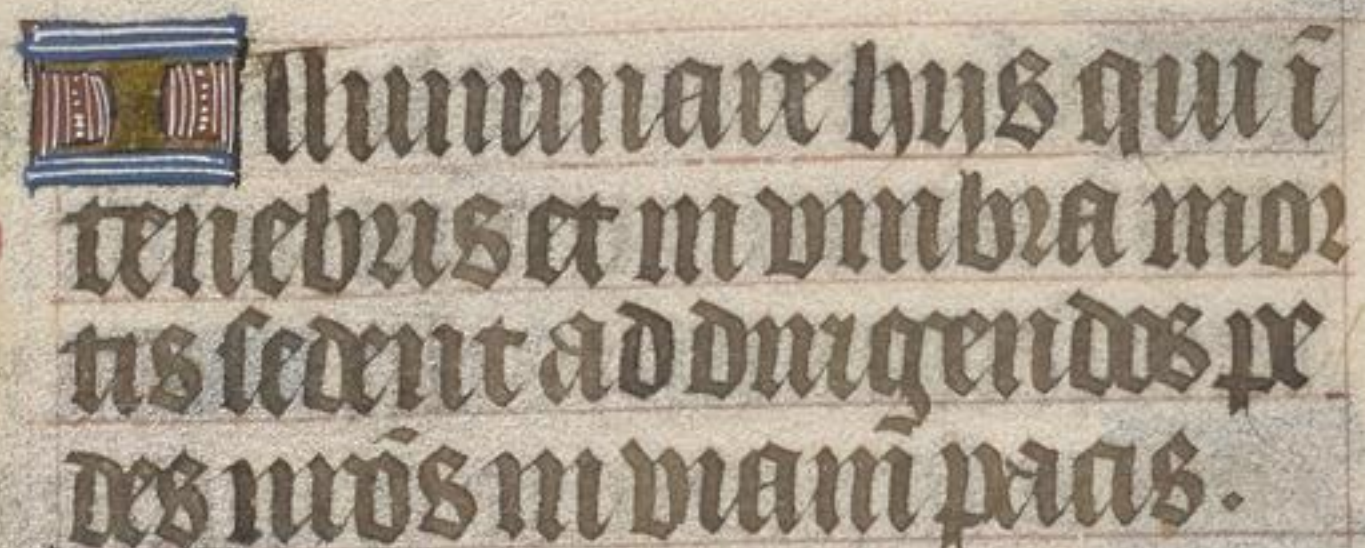 Illuminare hijs qui ī
tenebris et in vmbra mor
tis sedent ad dirigendos pe
des nrōs in viam pacis.